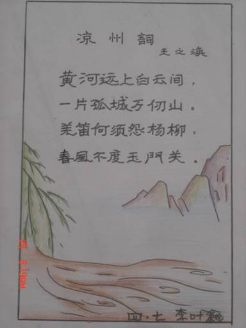 凉州詞
王之渙
黄河远上白云间，
一片孤城万仞山。
羌笛何须怨杨柳，
春風不度玉門关。
四·七 李叶